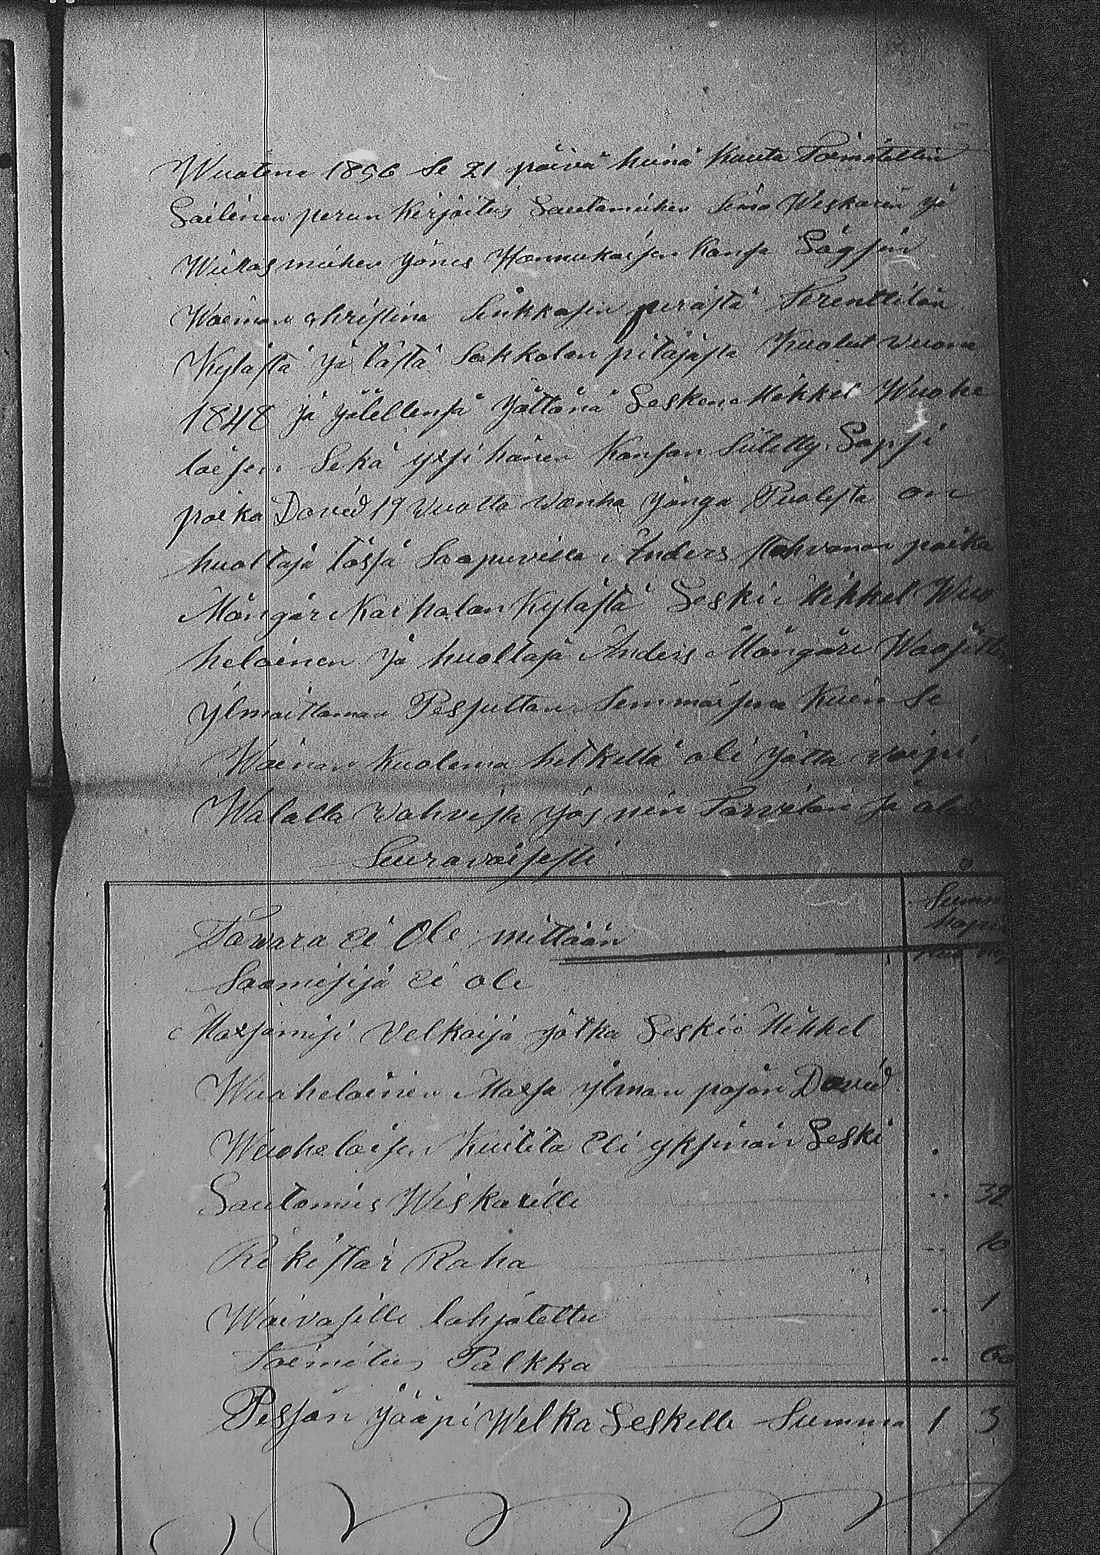 Wuotena 1856 Se 21 päivä heinä Kuuta Toimitettiin
Laillinen perun Kirjoitus Lautamiehen Simo Wiskarin ja
Wierasmiehen Jonas Hannukaisen Kansa Lägsin
Waiman Christina Sinkkosen perästä Terenttilän
Kylästä ja tästä Sakkolan pitäjästä Kuolut vuona
1848 ja jälellensä jättänä Lesken Mikkel Wuohe
laisen Sekä yxsi hänen Kansan Siitetty Lapsi
poika David 19 Vuotta Wanha jonga Puolesta on
huoltaja tässä Saapuvilla Anders Mahvonen poika
Mängär Karhalan Kylästä Leski Mikkel Wuo
helainen ja huoltaja Anders Mängäri
ylmoittaman Pesjuttan Semmoisena Kuin Se
Waiman Kuolema hetkellä oli ja
Walalla Wahvista jos nin Tarvitan ja
Seuravaisesti
Summa
Tawara ei Ole mittään
Saamisija ei ole
Maxsamisi Velkaija jotka Leskii Mikkel
Wuohelainen Maxsa ilman pojan David
Wuohelaisen Kuitita Eli yksinään Leski
Lautamies Wiskarille " 32
Rekistär Raha " 10
Waivasille lahjotettu " 1
Toimitus Palkka " 60
Pesjän jääpi Welka Leskelle Summa 1 3